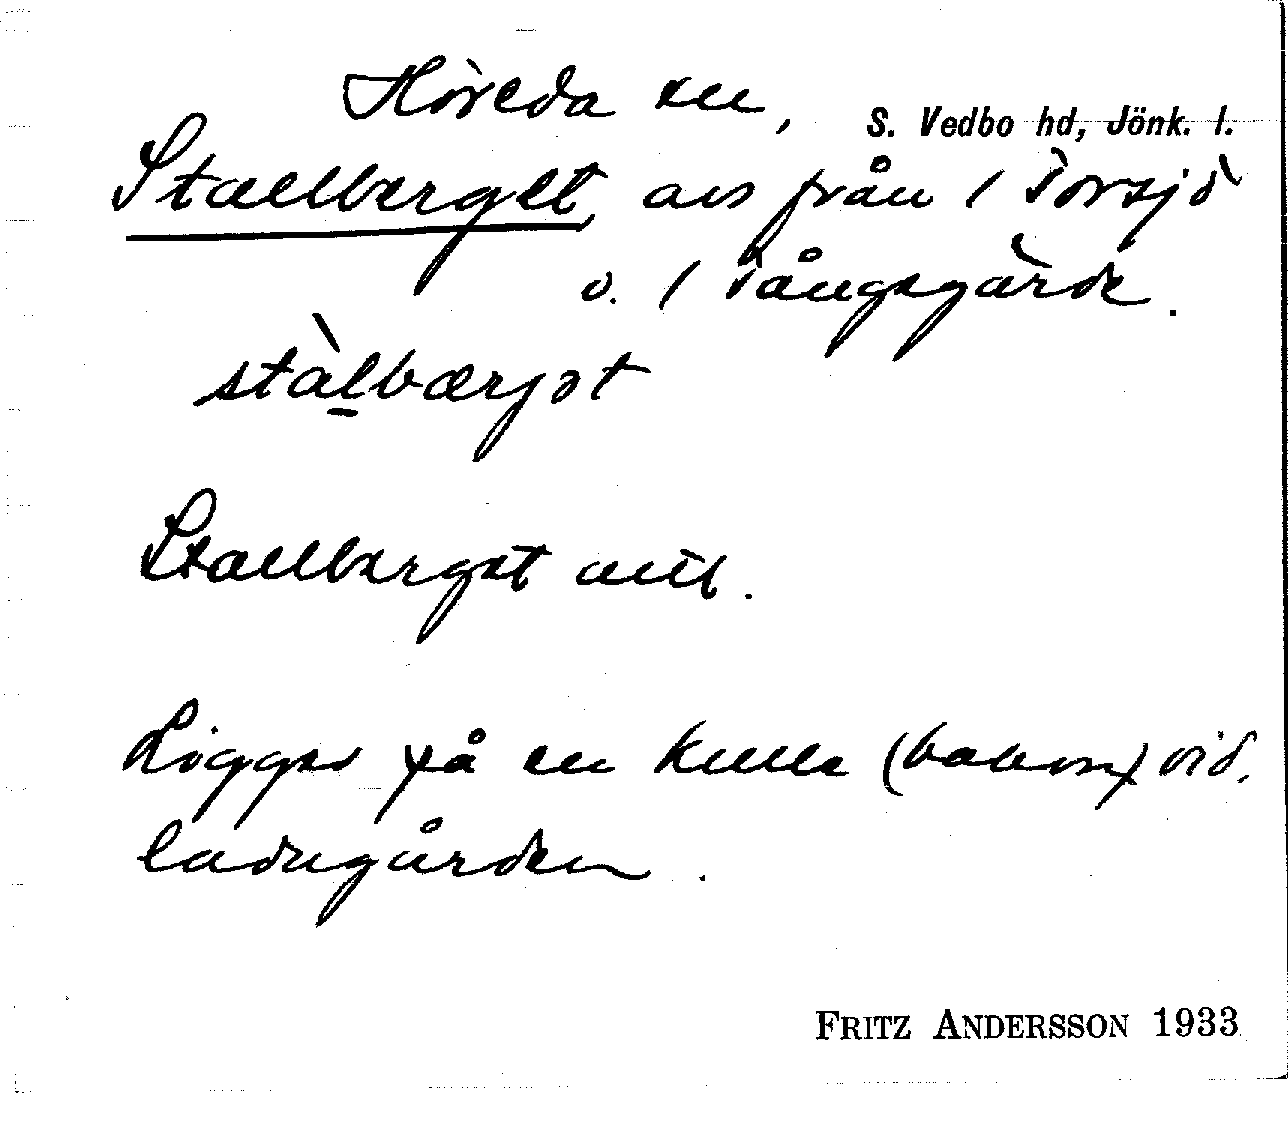 Höreda sn, S. Vedbo hd, Jönk. l.
Stallberget, avs från 1 Torsjö
o. 1 Tångsgärde.
stàlbærjət
Stallberget uttl.
Ligger på en kulle (bakom) vid
ladugården.
FRITZ ANDERSSON 1933